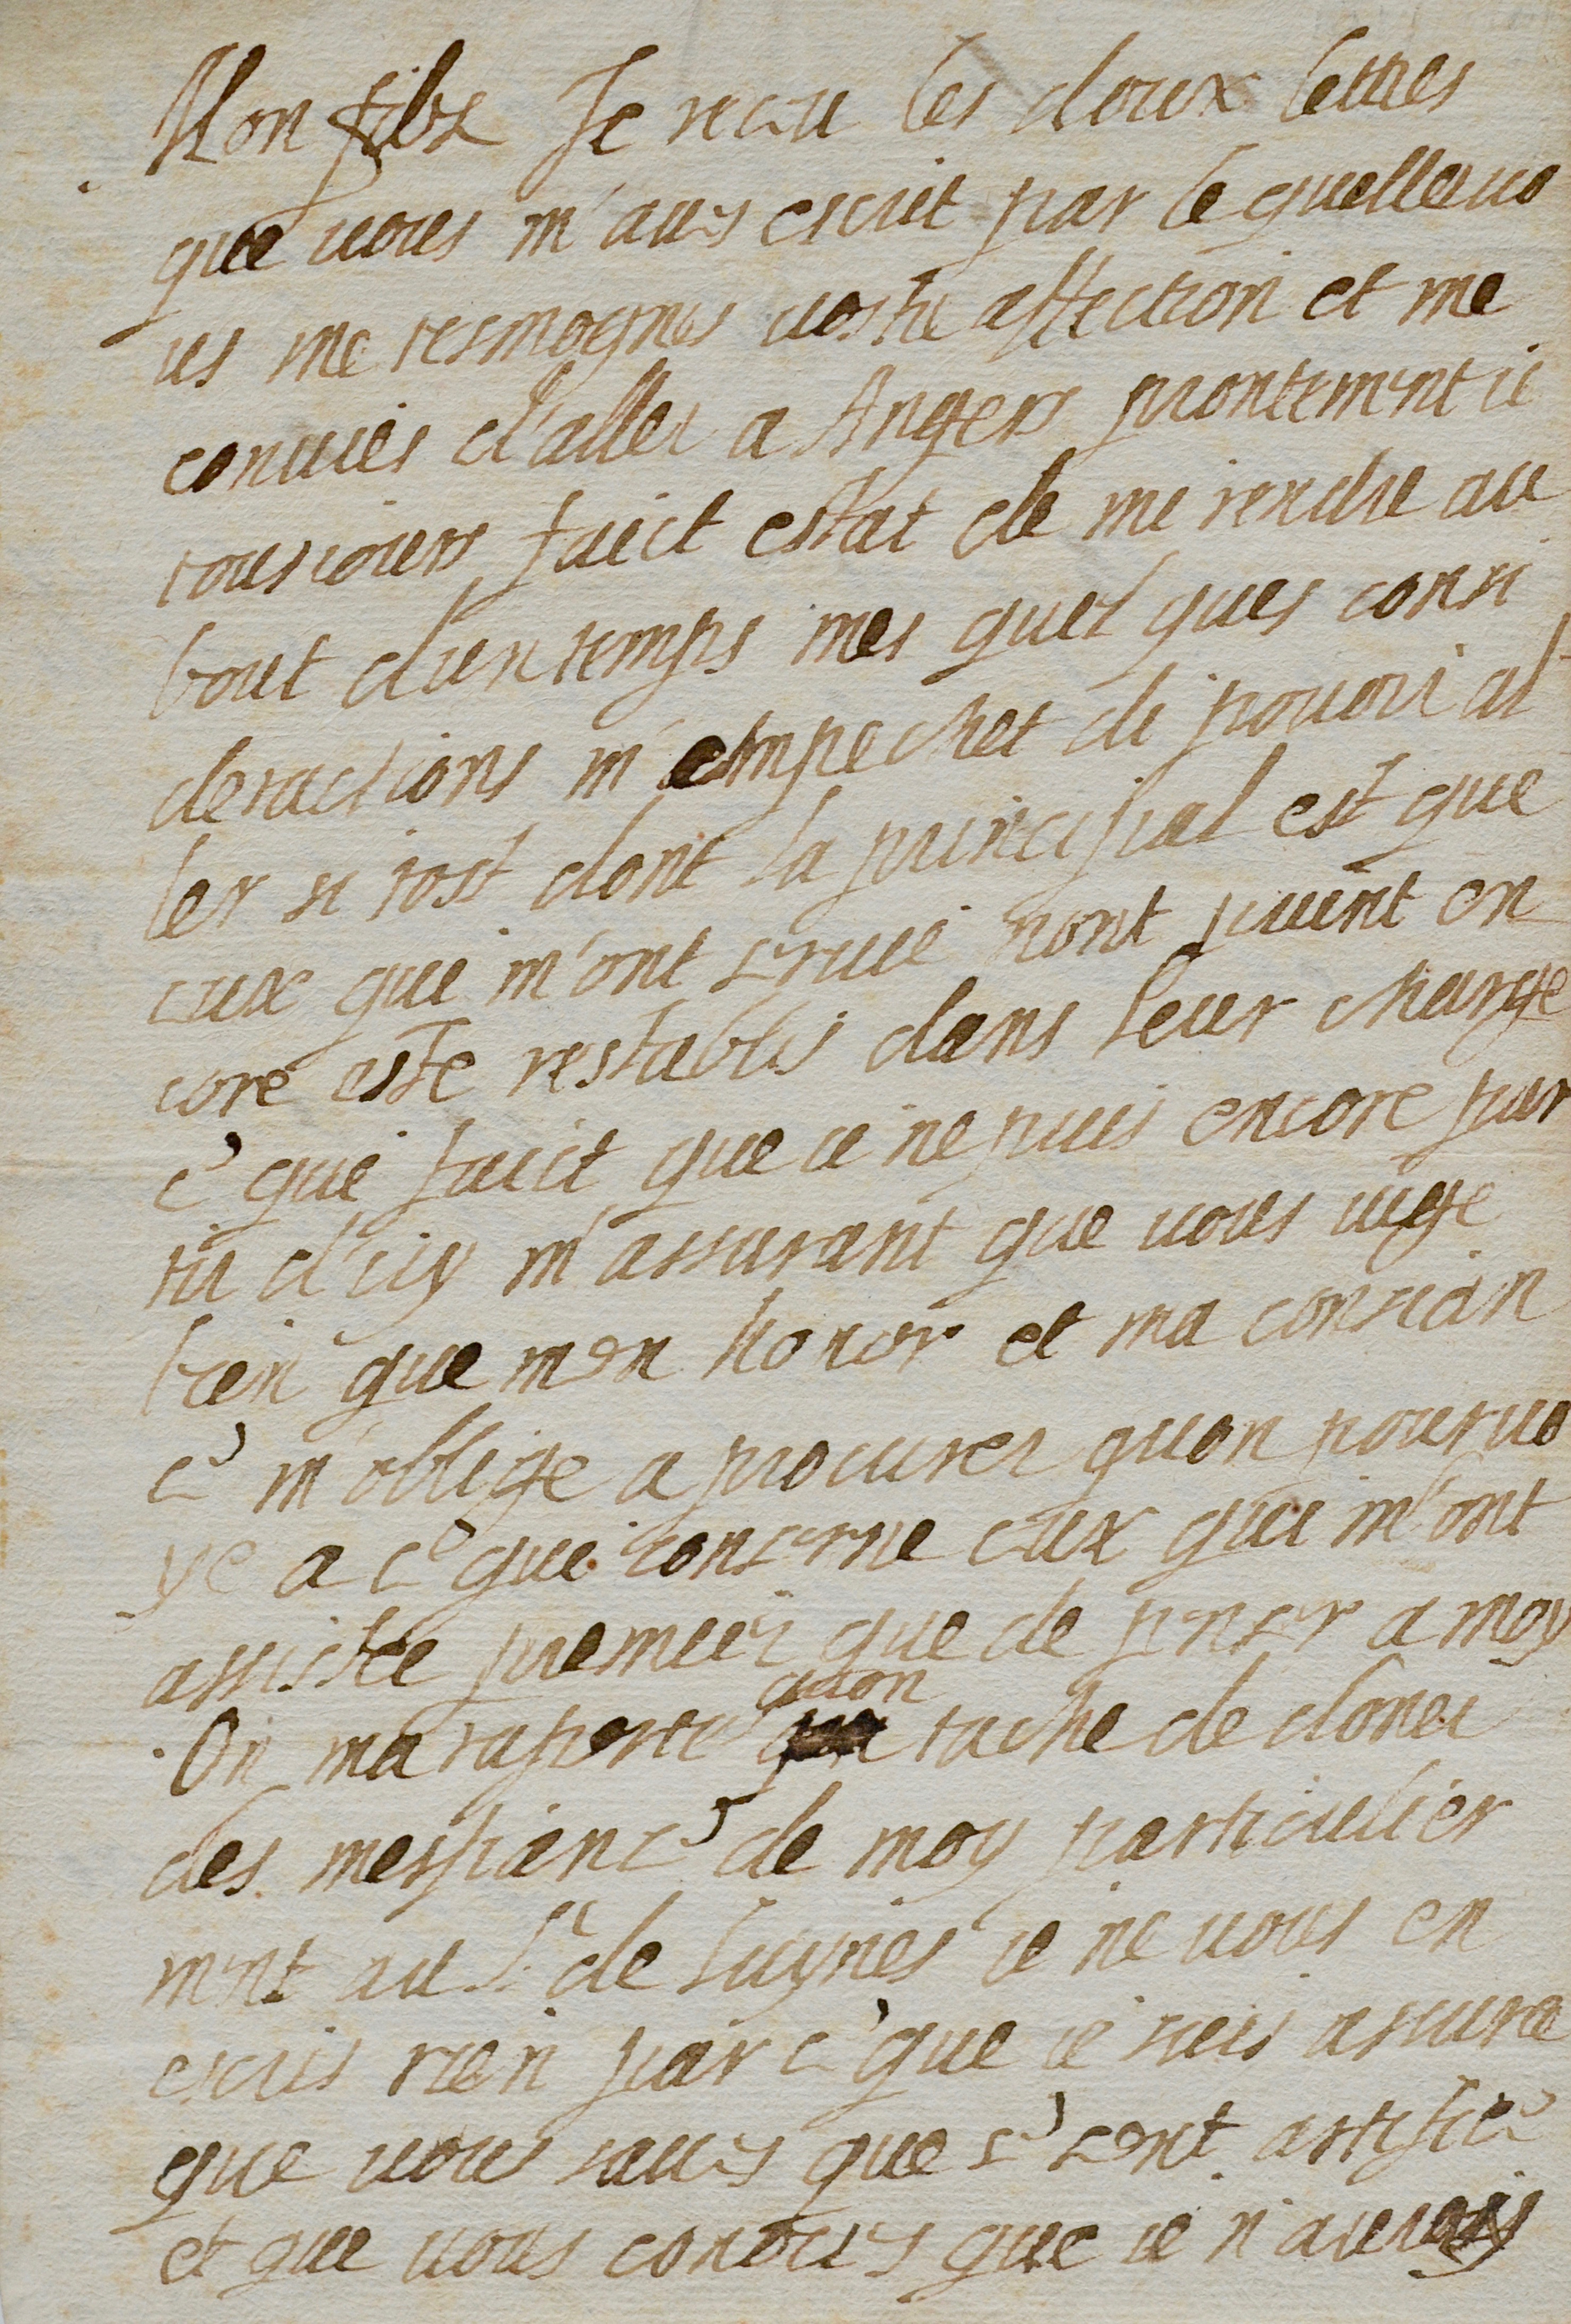 Mon filx Je recu les doux lettres
que uous m'aues escrit par le quelle uo
us me tesmognes uostre affection et me
conuies d'aller a Angers prontement ie
tousiours faict estat de me rendre au
bout d'un temps mes quel ques consi
deractions m'empechet di pouoir al
ler si tost dont la principal est que
ceux qui m'ont serui n'ont puint en
core este restablis dans leur charge
ce qui faict que ie ne puis encore par
tir d'icy m'assurant que uous iuge
bien que mon honor et ma consian
ce m'oblige a procurer quon pouruo
ye a ce qui conserne ceux qui m'ont
assistee premier que de penser a moy
On ma raporte quon tache de doner
des mesfiance de moy particulier
ment au Sr de Luynes ie ne uous en
escris rien par ce que ie suis assure
que uous saues que ce sont artifice
et que uous conoces que ie n'aurois